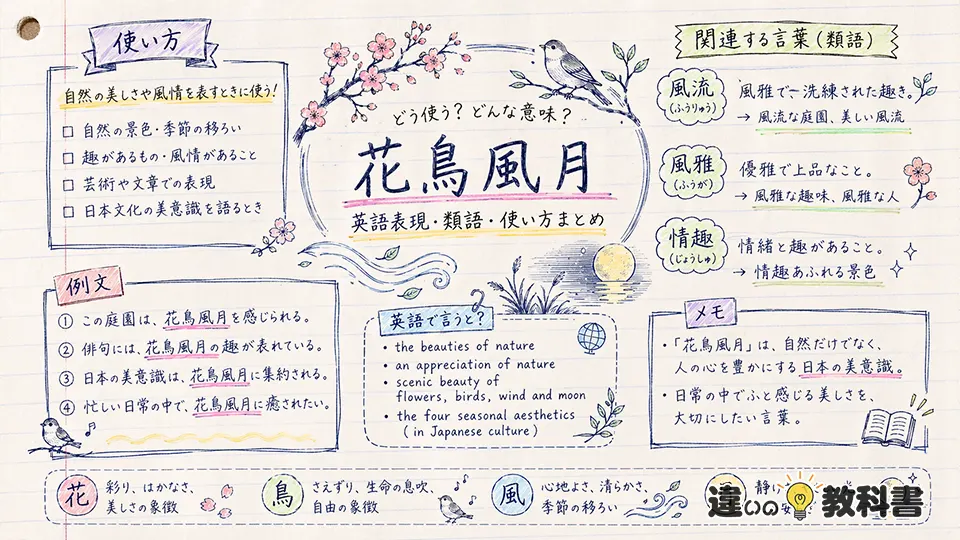 使い方
自然の美しさや風情を表すときに使う!
□ 自然の景色・季節の移ろい
□ 趣があるもの・風情があること
□ 芸術や文章での表現
□ 日本文化の美意識を語るとき
どう使う? どんな意味?
花鳥風月
英語表現・類語・使い方まとめ
関連する言葉(類語)
風流
(ふうりゅう)
風雅で洗練された趣き。
→ 風流な庭園、美しい風流
風雅
(ふうが)
優雅で上品なこと。
→ 風雅な趣味、風雅な人
情趣
(じょうしゅ)
情緒と趣があること。
→ 情趣あふれる景色
例文
① この庭園は、花鳥風月を感じられる。
② 俳句には、花鳥風月の趣が表れている。
③ 日本の美意識は、花鳥風月に集約される。
④ 忙しい日常の中で、花鳥風月に癒されたい。
英語で言うと?
• the beauties of nature
• an appreciation of nature
• scenic beauty of
flowers, birds, wind and moon
• the four seasonal aesthetics
(in Japanese culture)
メモ
・「花鳥風月」は、自然だけでなく、
人の心を豊かにする日本の美意識。
・日常の中でふと感じる美しさを、
大切にしたい言葉。
花
彩り、はかなさ、
美しさの象徴
鳥
さえずり、生命の息吹、
自由の象徴
風
心地よさ、清らかさ、
季節の移ろい
静け
違いの教科書